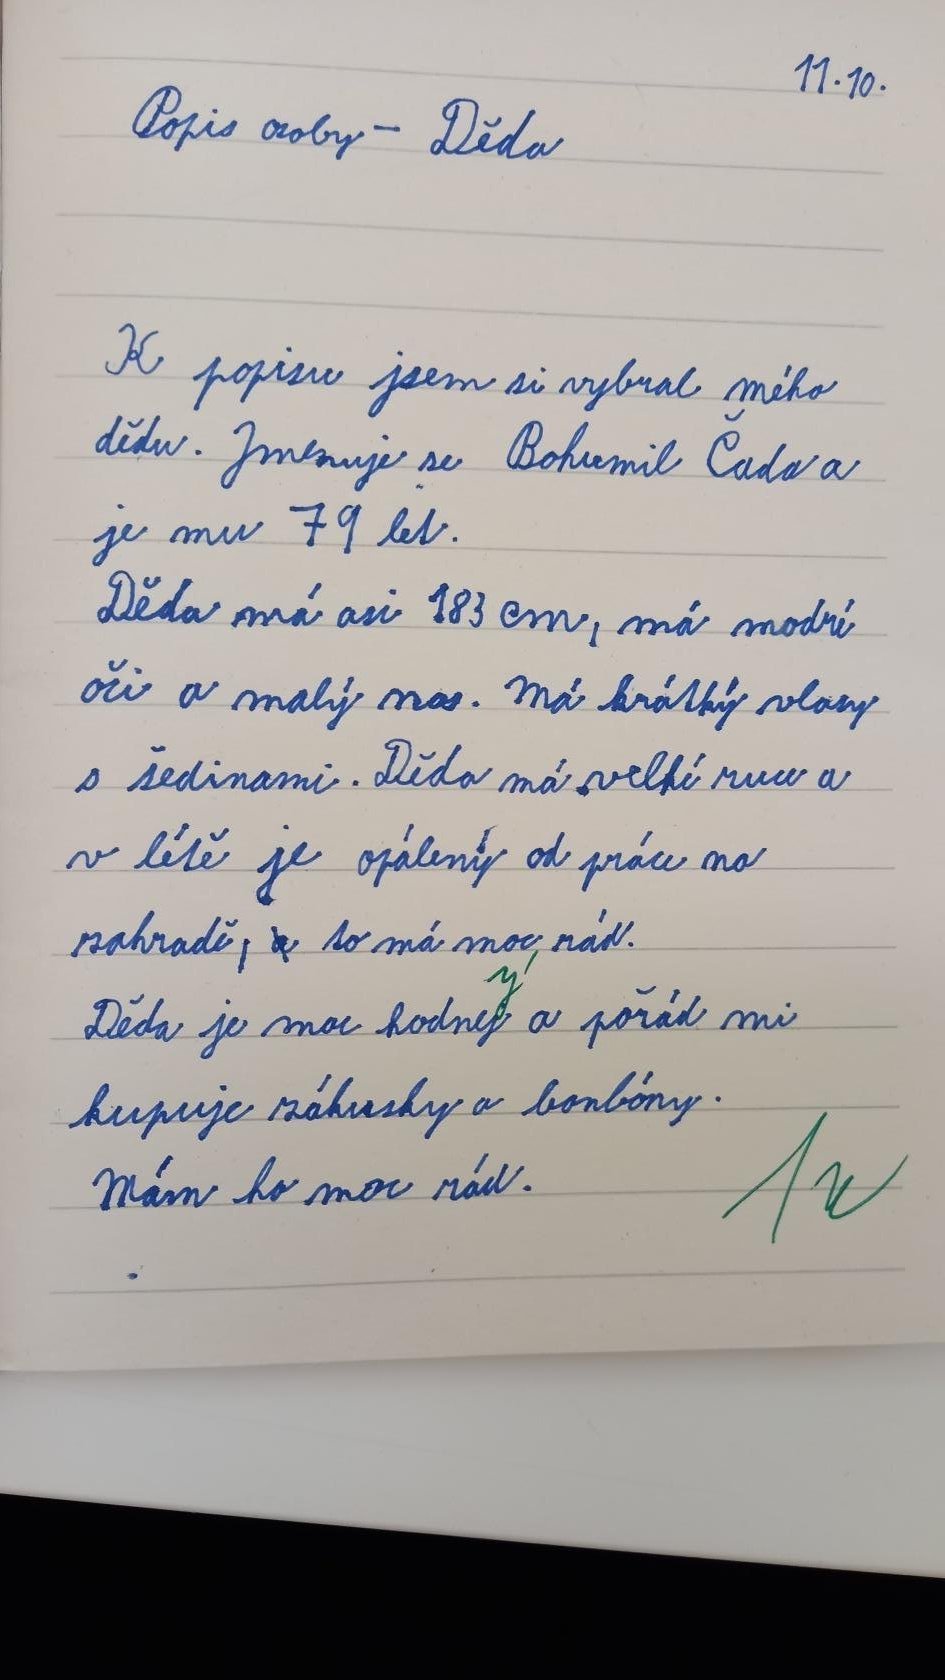 11.10.
Popis osoby - Děda
K popisu jsem si vybral mého
dědu. Jmenuje se Bohumil Čada a
je mu 79 let.
Děda má asi 183 cm, má modrí
oči a malý nos. Má krátký vlasy
s šedinami. Děda má velkí ruce a
v létě je opálený od práce na
zahradě, to má moc rád.
ý
Děda je moc hodnej a pořád mi
kupuje zákusky a bonbóny.
Mám ho moc rád.